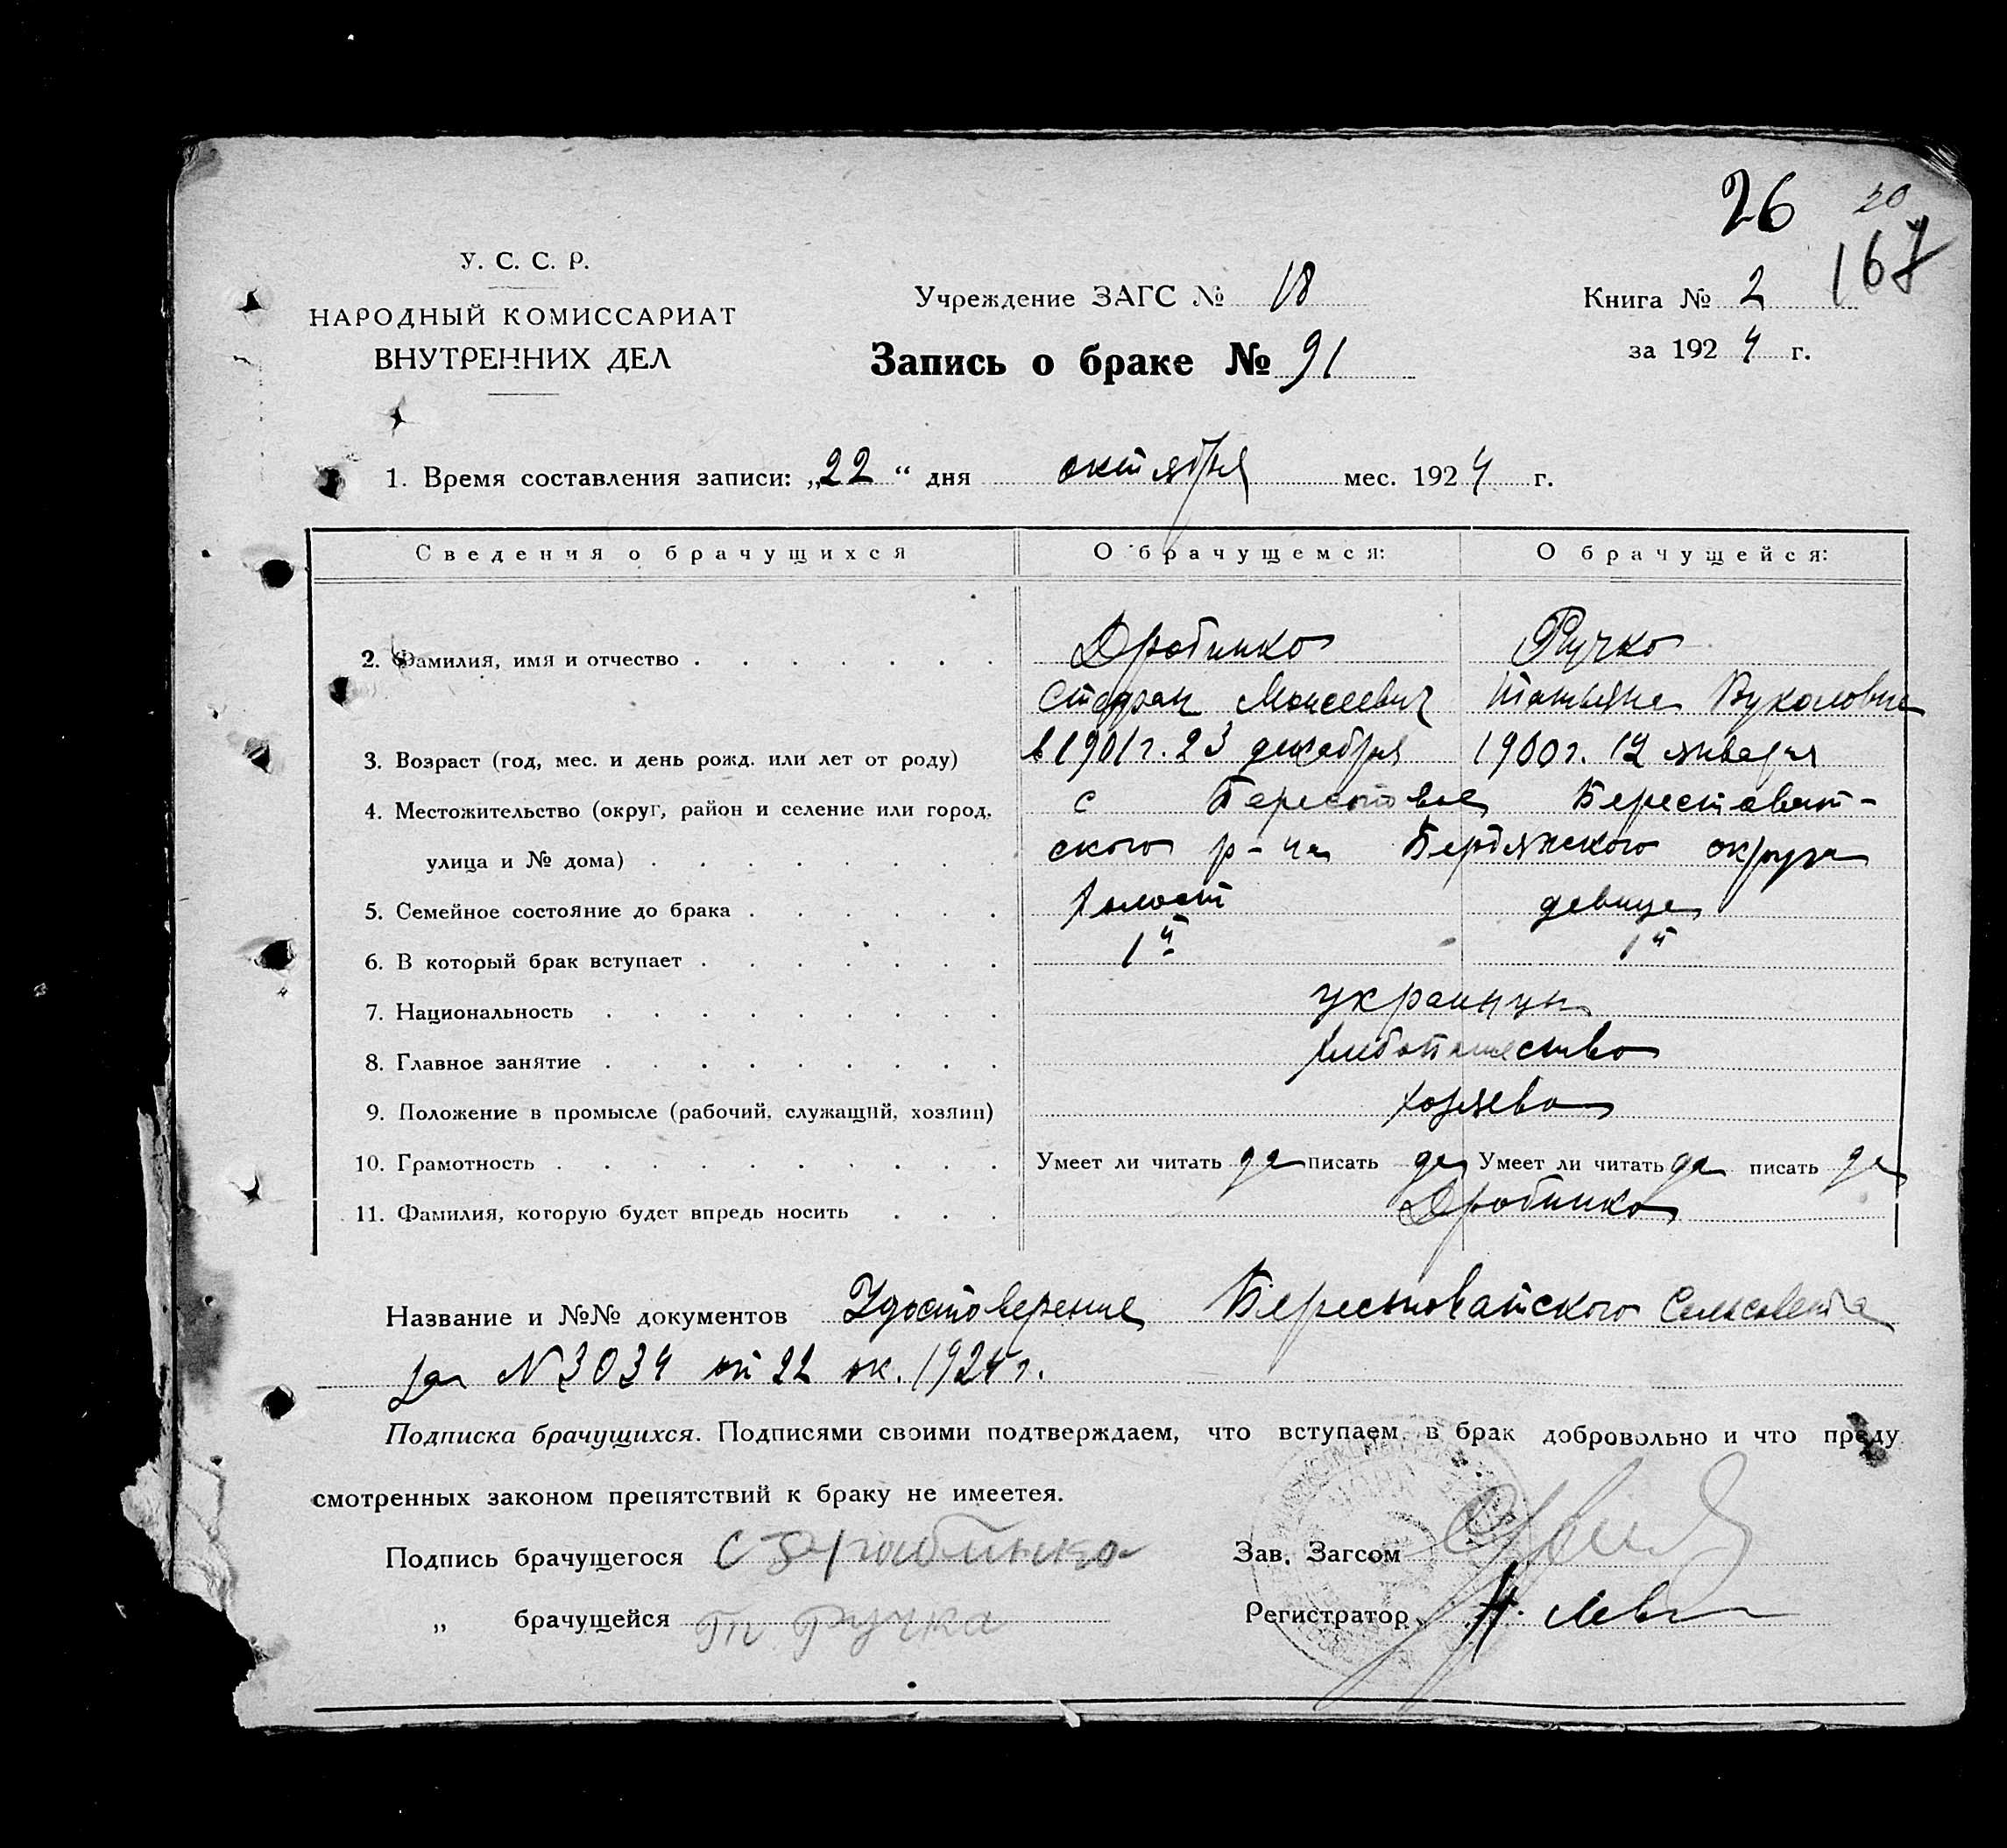 26 20
167
У. С. С. Р.
НАРОДНЫЙ КОМИССАРИАТ
ВНУТРЕННИХ ДЕЛ
Учреждение ЗАГС № 18
Книга № 2
Запись о браке № 91
за 1924 г.
1. Время составления записи: „22“ дня октября мес. 1924 г.
Сведения о брачущихся О брачущемся: О брачущейся:
2. Фамилия, имя и отчество Дробинко Ручко
Стефан Моисеевич Татьяна Вуколовна
3. Возраст (год, мес. и день рожд. или лет от роду) в 1901 г. 23 декабря 1900 г. 12 января
4. Местожительство (округ, район и селение или город, с Берестовое Берестоват-
улица и № дома) ского р-на Бердянского округа
5. Семейное состояние до брака холост девица
6. В который брак вступает 1й 1й
7. Национальность украинцы
8. Главное занятие хлебопашество
9. Положение в промысле (рабочий, служащий, хозяин) хозяева
10. Грамотность Умеет ли читать да писать да Умеет ли читать да писать да
11. Фамилия, которую будет впредь носить Дробинко
Название и №№ документов Удостоверение Берестоватского Сельсовета
за N 3034 от 22 ок. 1924 г.
Подписка брачущихся. Подписями своими подтверждаем, что вступаем в брак добровольно и что преду
смотренных законом препятствий к браку не имеетея.
Подпись брачущегося С Драбинко Зав. Загсом
„ брачущейся Тт Ручка Регистратор